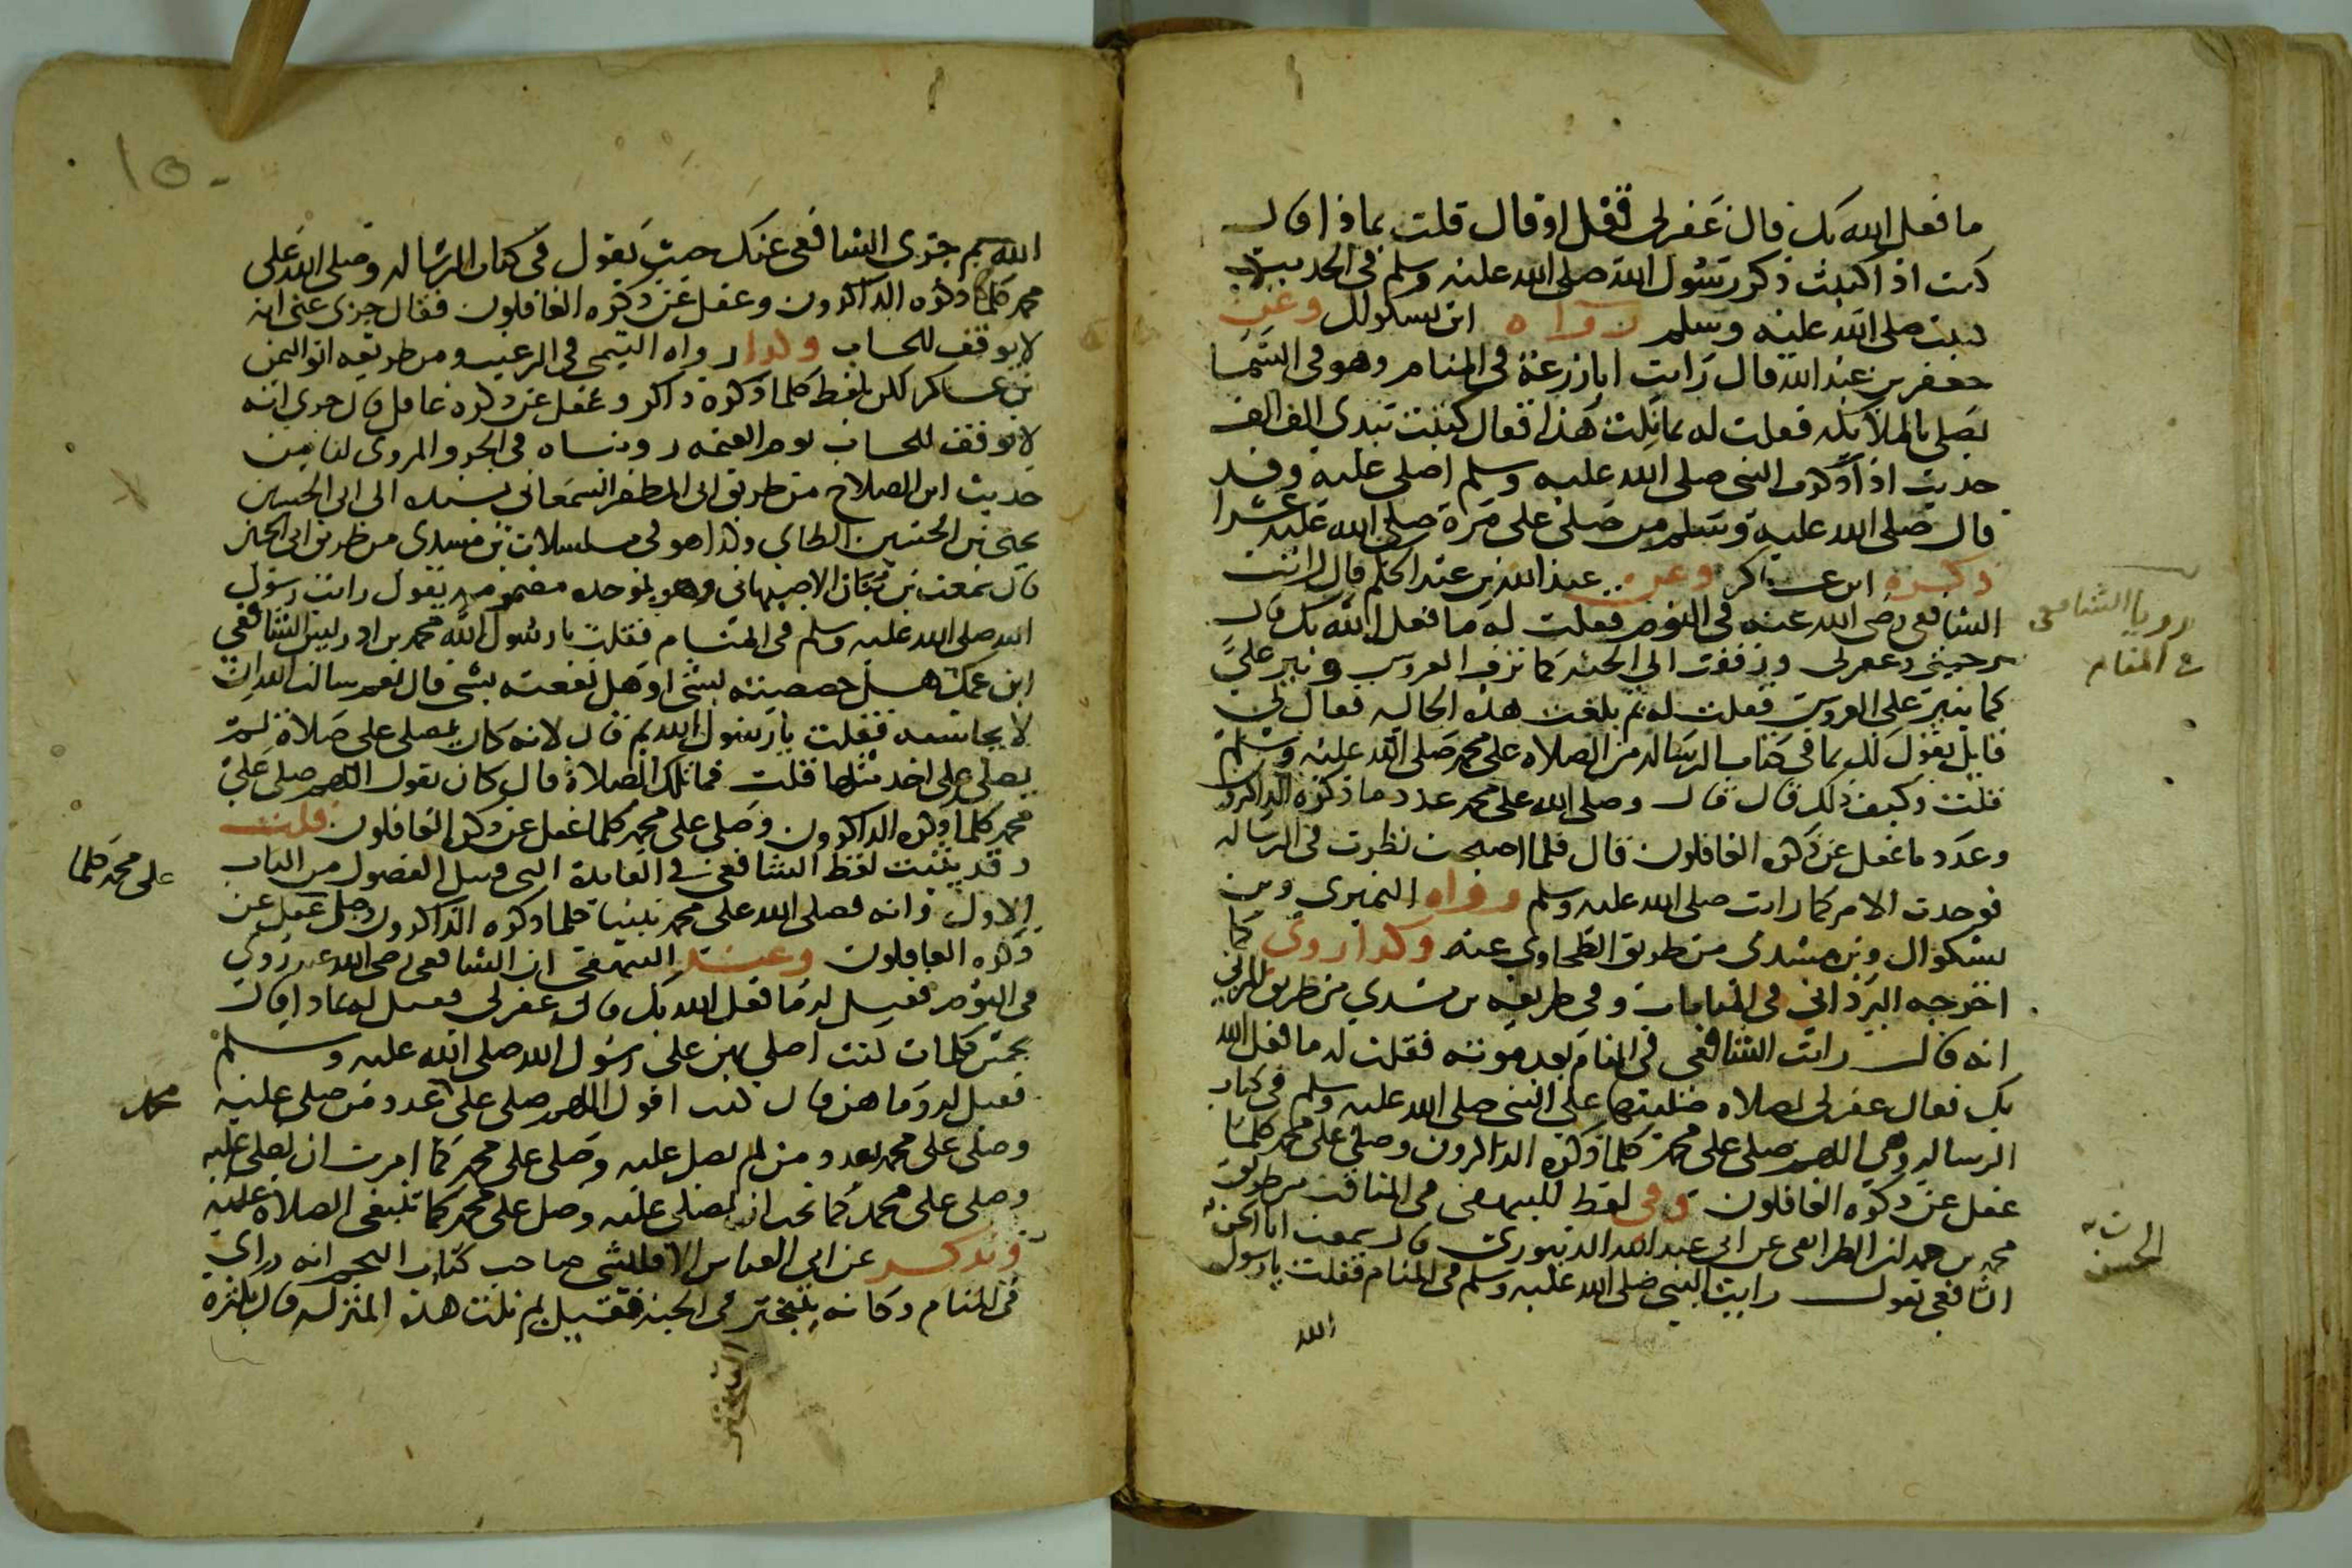 ما فعل الله بك قال غفر لي فقل او قال قلت بماذا قال
كنت اذا كتبت ذكر رسول الله صلى الله عليه وسلم في الحديث
كتبت صلى الله عليه وسلم رواه ابن بشكوال وعن
جعفر بن عبد الله قال رايت ابا زرعة في المنام وهو في السما
يصلي بالملايكه فقلت له بما نلت هذا فقال كتبت بيدي الف الف
حديث اذا ذكرت النبي صلى الله عليه وسلم اصلي عليه وقد
قال صلى الله عليه وسلم من صلى علي مرة صلى الله عليه عشرا
ذكره ابن عساكر وعن عبد الله بن عبد الحكم قال رايت
الشافعي رضي الله عنه في النوم فقلت له ما فعل الله بك قال
رحمني وغفر لي وزففت الى الجنه كما تزف العروس ونثر علي
كما ينثر على العروس فقلت له بم بلغت هذه الحاله فقال لي
قايل يقول لك بما في كتاب الرساله من الصلاه على محمد صلى الله عليه وسلم
قلت وكيف ذلك قال قال وصلى الله على محمد عدد ما ذكره الذاكرون
وعدد ما غفل عن ذكره الغافلون قال فلما اصبحت نظرت في الرساله
فوجدت الامر كما رايت صلى الله عليه وسلم ورواه النميري وبن
بشكوال وبن مسدي من طريق الطحاوي عنه وكذا روي كما
اخرجه البرداني في المنامات وفي طريقه بن مسدي من طريق المزني
انه قال رايت الشافعي في المنام بعد موته فقلت له ما فعل الله
بك فقال غفر لي بصلاه صليتها على النبي صلى الله عليه وسلم في كتاب
الرساله وهي اللهم صلي على محمد كلما ذكره الذاكرون وصلي على محمد كلما
غفل عن ذكره الغافلون وفي لفظ للبيهقي في المناقب من طريق
محمد بن حمدان الطرايفي عن ابي عبد الله الدينوري قال سمعت ابا الحسن
الشافعي يقول رايت النبي صلى الله عليه وسلم في المنام فقلت يا رسول
الله
رويا الشافعي
في المنام
الحسن
الله بم جزي الشافعي عنك حيث يقول في كتاب الرساله وصلى الله على
محمد كلما ذكره الذاكرون وغفل عن ذكره الغافلون فقال جزي عني انه
لا يوقف للحساب وكذا رواه التيمي في الترغيب ومن طريقه ابو اليمن
بن عساكر لكن بلفظ كلما ذكره ذاكر وغفل عن ذكره غافل قال جزي انه
لا يوقف للحساب يوم القيمه روينساه في الجزو المروي لنا من
حديث ابن الصلاح من طريق ابي المظفر السمعاني بسنده الى ابي الحسين
يحيى بن الحسين الطاي وكذا هو في مسلسلات بن مسدي من طريق ابي الحسن
قال سمعت بن بنان الاصبهاني وهو بموحده مضمومه يقول رايت رسول
الله صلى الله عليه وسلم في المنام فقلت يا رسول الله محمد بن ادريس الشافعي
ابن عمك هل خصصته بشي او هل نفعته بشي قال نعم سالت الله ان
لا يحاسبه فقلت يا رسول الله بم قال لانه كان يصلي علي صلاة لم
يصلي علي احد مثلها قلت فما تلك الصلاة قال كان يقول اللهم صلي على
محمد كلما ذكره الذاكرون وصلي على محمد كلما غفل عن ذكره الغافلون قلت
وقد بينت لفظ الشافعي في الفايدة التي قبيل الفصول من الباب
الاول وانه فصلى الله على محمد نبينا كلما ذكره الذاكرون وكل غفل عن
ذكره الغافلون وعند البيهقي ان الشافعي رضي الله عنه روي
في النوم فقيل له ما فعل الله بك قال غفر لي فقيل له بماذا قال
بخمس كلمات كنت اصلي بهن على رسول الله صلى الله عليه وسلم
فقيل له وما هن قال كنت اقول اللهم صلي على عدد من صلى عليه
وصلي على محمد بعدد من لم يصل عليه وصلي على محمد كما امرت ان يصلى عليه
وصلي على محمد كما تحب ان يصلى عليه وصل على محمد كما تنبغي الصلاة عليه
ونذكر عن ابي العباس الاقليشي صاحب كتاب النجم انه راي
في المنام وكانه يتبختر في الجنه فقيل بم نلت هذه المنزله قال بكثرة
على محمد كلما
محمد
١٥٠